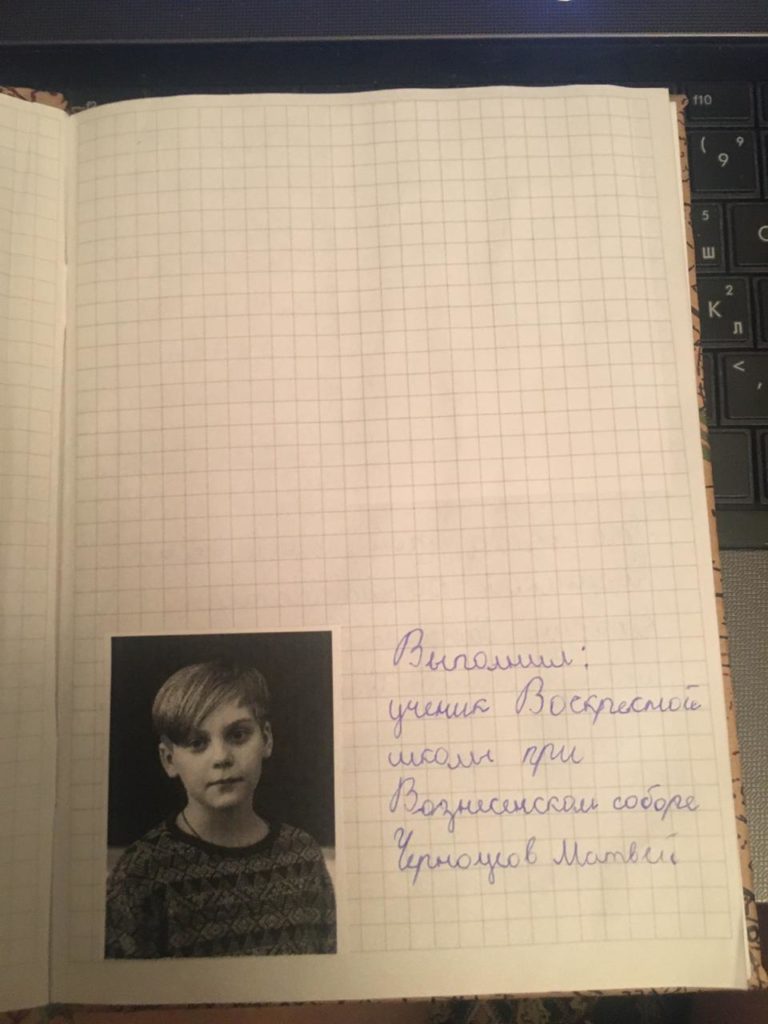 f10
( 9 9
5 ш
К 2 л
< ,
Выполнил:
ученик Воскресной
школы при
Вознесенском соборе
Черноусов Матвей